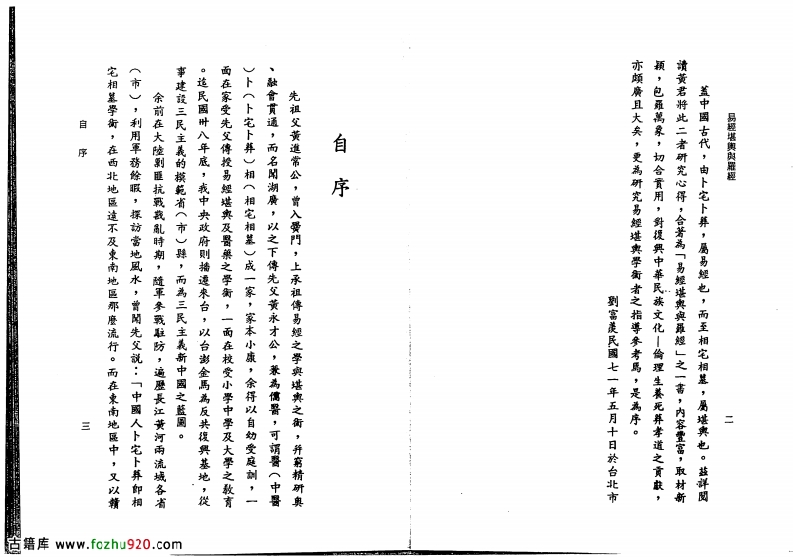 易經堪輿與羅經
二
蓋中國古代，由卜宅卜葬，屬易經也，而至相宅相墓，屬堪輿也。茲詳閱
讀黃君將此二者研究心得，合著為「易經堪輿與羅經」之一書，內容豐富，取材新
穎，包羅萬象，切合實用，對復興中華民族文化—倫理生養死葬孝道之貢獻，
亦頗廣且大矣，更為研究易經堪輿學術者之指導參考焉，是為序。
劉富羨民國七一年五月十日於台北市
自序
先祖父黃進常公，曾入黌門，上承祖傳易經之學與堪輿之術，并窮精研奥
、融會貫通，而名聞湖廣，以之下傳先父黃永才公，兼為儒醫，可謂醫（中醫
）卜（卜宅卜葬）相（相宅相墓）成一家，家本小康，余得以自幼受庭訓，一
面在家受先父傳授易經堪輿及醫藥之學術，一面在校受小學中學及大學之教育
。迄民國卅八年底，我中央政府則播遷來台，以台澎金馬為反共復興基地，從
事建設三民主義的模範省（市）縣，而為三民主義新中國之藍圖。
余前在大陸剿匪抗戰戡亂時期，隨軍參戰駐防，遍歷長江黃河兩流域各省
（市），利用軍務餘暇，探訪當地風水，曾聞先父說：「中國人卜宅卜葬即相
宅相墓學術，在西北地區遠不及東南地區那麼流行。而在東南地區中，又以贛
自序
三
古籍库 www.fozhu920.com